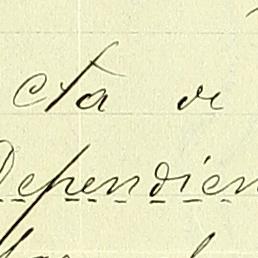 cta de
Dependien